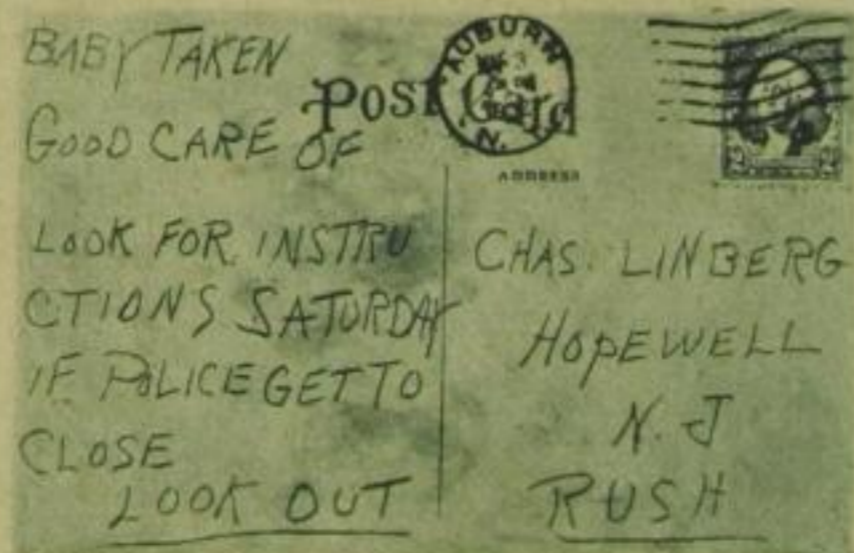 BABY TAKEN
GOOD CARE OF
LOOK FOR INSTRU
CTIONS SATURDAY
IF POLICE GET TO
CLOSE
LOOK OUT
POST Card
AUBURN
3
N.
ADDRESS
CHAS. LINBERG
HOPEWELL
N. J
RUSH